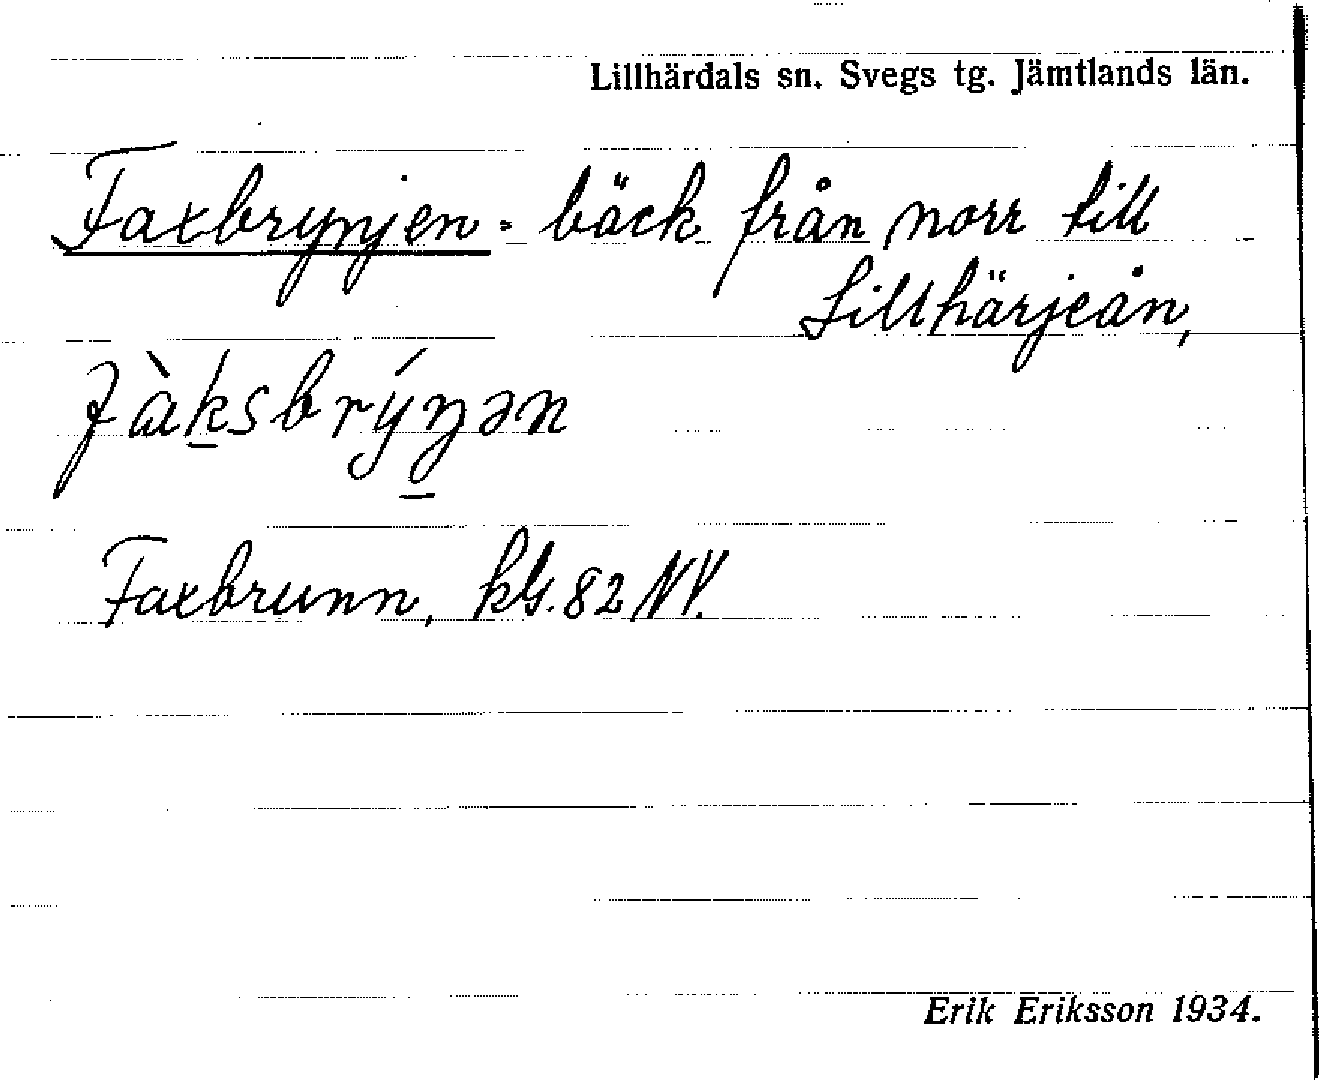 Lillhärdals sn. Svegs tg. Jämtlands län.
Faxbrynjen = bäck från norr till
Lillhärjeån,
fàksbrýŋən
Faxbrunn, kbl. 82 NV.
Erik Eriksson 1934.